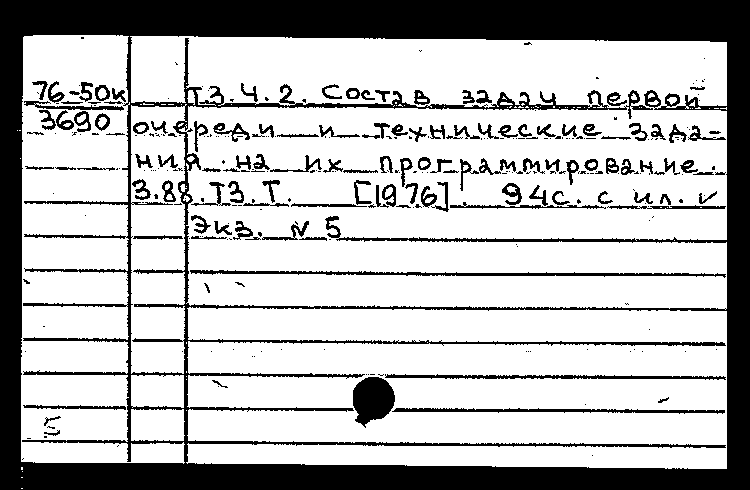 76-50к Т.3.Ч.2. Состав задач первой
3690 очереди и технические зада-
ния на их программирование.
3.88.ТЗ.Т. [1976]. 94с. с ил. v
Экз. N 5
5